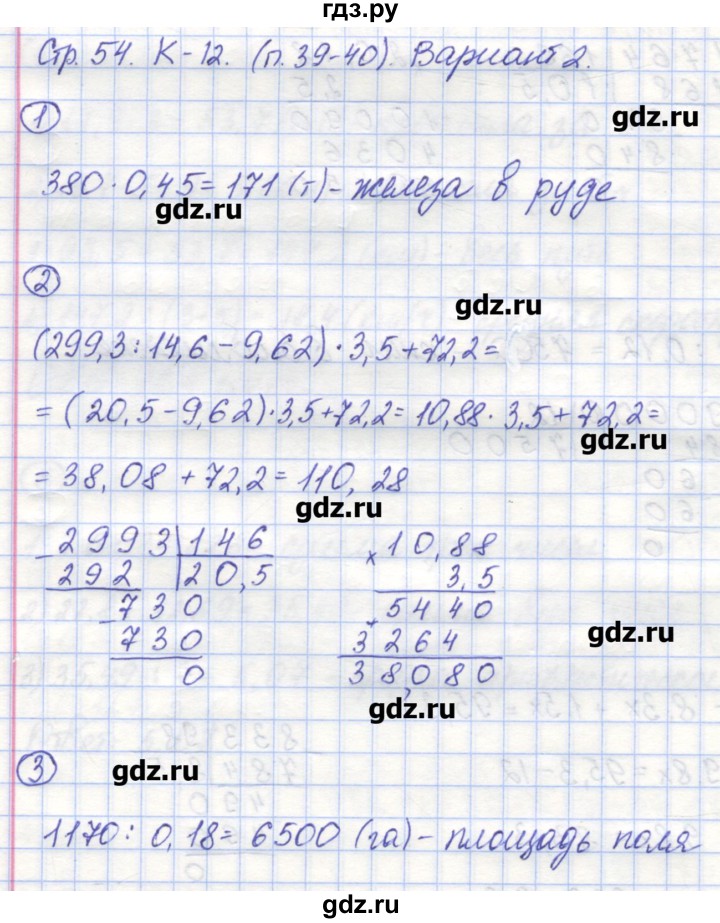 гдз.ру
Стр. 54. К-12. (п. 39-40). Вариант 2.
1
gdz.ru
380 · 0,45 = 171 (т) - железа в руде
gdz.ru
2
gdz.ru
(299,3 : 14,6 - 9,62) · 3,5 + 72,2 =
= (20,5 - 9,62) · 3,5 + 72,2 = 10,88 · 3,5 + 72,2 =
gdz.ru
= 38,08 + 72,2 = 110,28
gdz.ru
2993 | 146
292 | 20,5
730
730
0
× 10,88
3,5
5440
3264
38,080
gdz.ru
gdz.ru
3
gdz.ru
1170 : 0,18 = 6500 (га) - площадь поля
gdz.ru